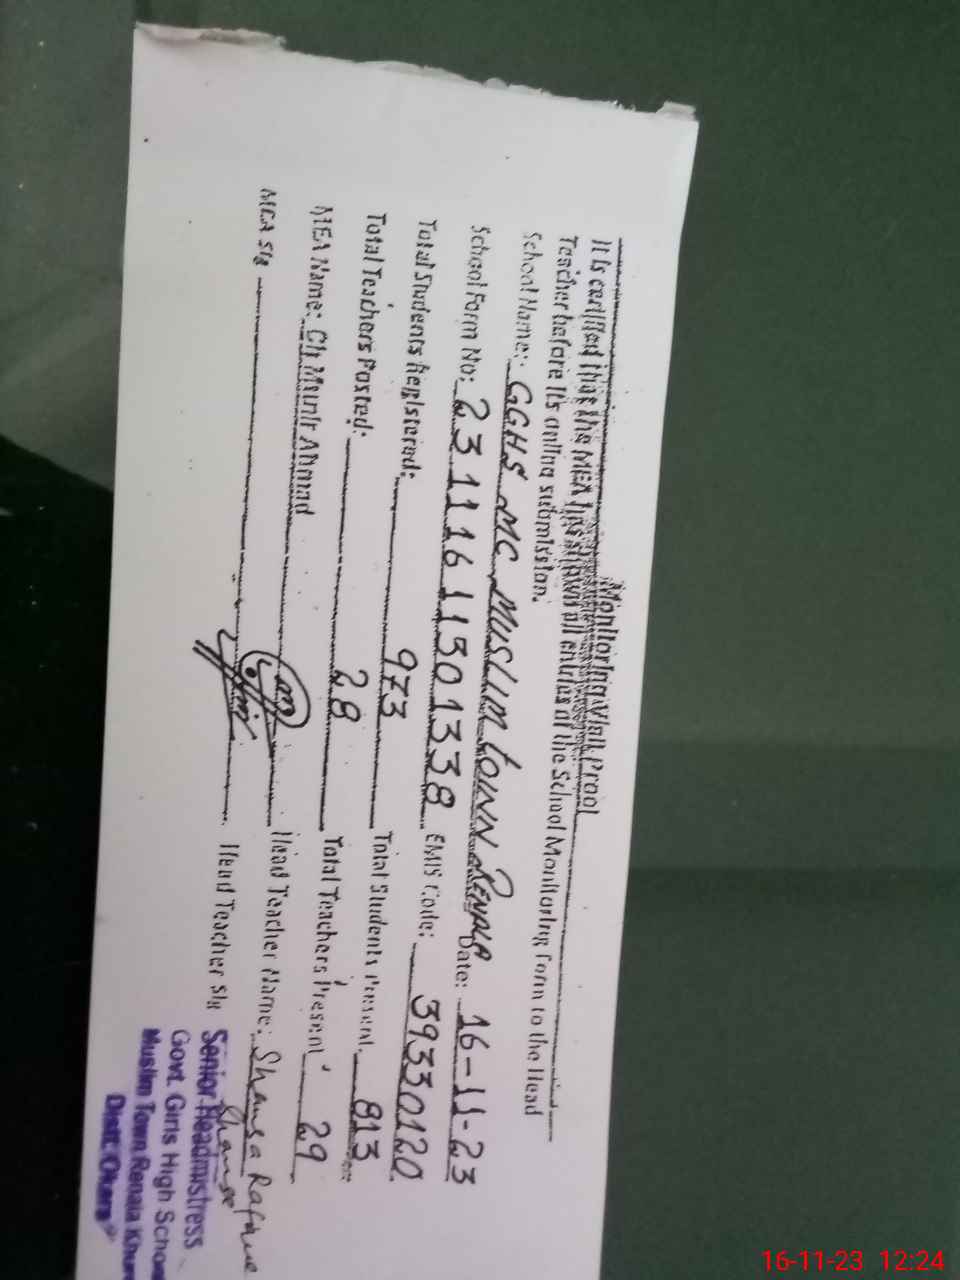 Monitoring Visit Proof
It is certified that the MEA has shown all entries of the School Monitoring Form to the Head
Teacher before it's online submission.
School Name: GGHS MC MUSLIM TOWN RENALA Date: 16-11-23
School Form No: 23111611301338 EMIS Code: 39330120
Total Students Registered: 973 Total Students Present. 813
Total Teachers Posted: 28 Total Teachers Present 29
MEA Name: Ch Munir Ahmad Head Teacher Name: Shamsa Rafique
MEA Sig Head Teacher Sig
Senior Headmistress
Govt. Girls High School
Muslim Town Renala Khurd
Distt. Okara
16-11-23 12:24